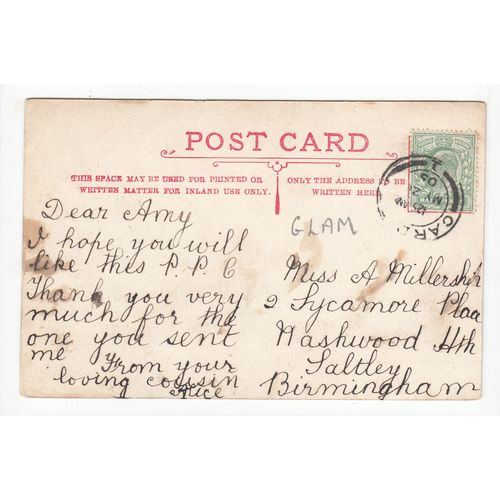 POST CARD
THIS SPACE MAY BE USED FOR PRINTED OR
WRITTEN MATTER FOR INLAND USE ONLY.
ONLY THE ADDRESS TO BE
WRITTEN HERE
Dear Amy
I hope you will
like this P.P.C
Thank you very
much for the
one you sent
me
From your
loving cousin
GLAM
Miss A Millership
2 Sycamore Place
Washwood Hth
Saltley
Birmingham
CAR
05